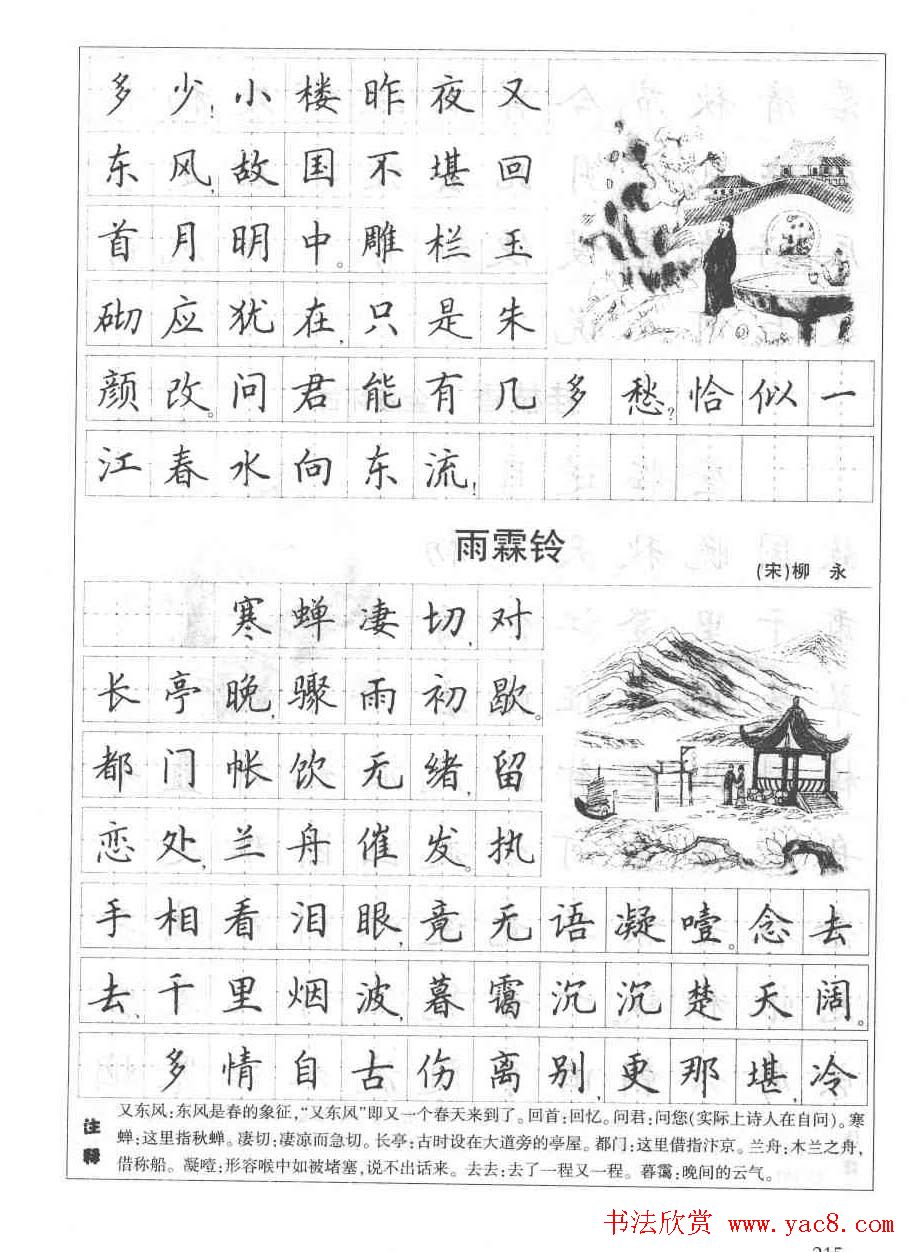 多少!小楼昨夜又
东风,故国不堪回
首月明中。雕栏玉
砌应犹在,只是朱
颜改。问君能有几多愁?恰似一
江春水向东流!
雨霖铃
(宋)柳 永
寒蝉凄切,对
长亭晚,骤雨初歇。
都门帐饮无绪,留
恋处,兰舟催发。执
手相看泪眼,竟无语凝噎。念去
去,千里烟波,暮霭沉沉楚天阔。
多情自古伤离别,更那堪,冷
注释
又东风:东风是春的象征,“又东风”即又一个春天来到了。回首:回忆。问君:问您(实际上诗人在自问)。寒
蝉:这里指秋蝉。凄切:凄凉而急切。长亭:古时设在大道旁的亭屋。都门:这里借指汴京。兰舟:木兰之舟,
借称船。凝噎:形容喉中如被堵塞,说不出话来。去去:去了一程又一程。暮霭:晚间的云气。
书法欣赏 www.yac8.com